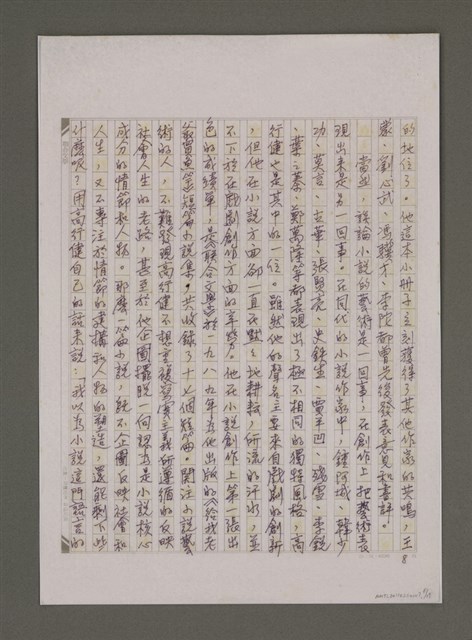 的地位了。他這本小冊子立刻獲得了其他作家的共鳴，王
蒙、劉心武、馮驥才、李陀都曾先後發表意見和書評。
當然，談論小說的藝術是一回事，在創作上把藝術表
現出來是另一回事。在同代的小說作家中，鍾阿城、韓少
功、莫言、古華、張賢亮、史鐵生、賈平凹、殘雪、李銳
、葉之蓁、鄭萬隆等都表現出了極不相同的獨特風格，高
行健也是其中的一位。雖然他的聲名主要來自戲劇的創新
，但他在小說方面卻一直在默默地耕耘，所流的汗水，並
不下於在戲劇創作方面的辛勞。他在小說創作上第一張出
色的成績單，是聯合文學於一九八九年為他出版的《給我老
爺買魚竿》短篇小說集。共收錄了十七個短篇。關注小說藝
術的人，不難發現高行健不想重複寫實主義所遵循的反映
社會人生的老路，甚至於他企圖擺脫一向認為是小說核心
成分的情節和人物。那麼一篇小說，既不企圖反映社會和
人生，又不專注於情節的建構和人物的塑造，還能剩下些
什麼呢？用高行健自己的話來說：我以為小說這門語言的
8